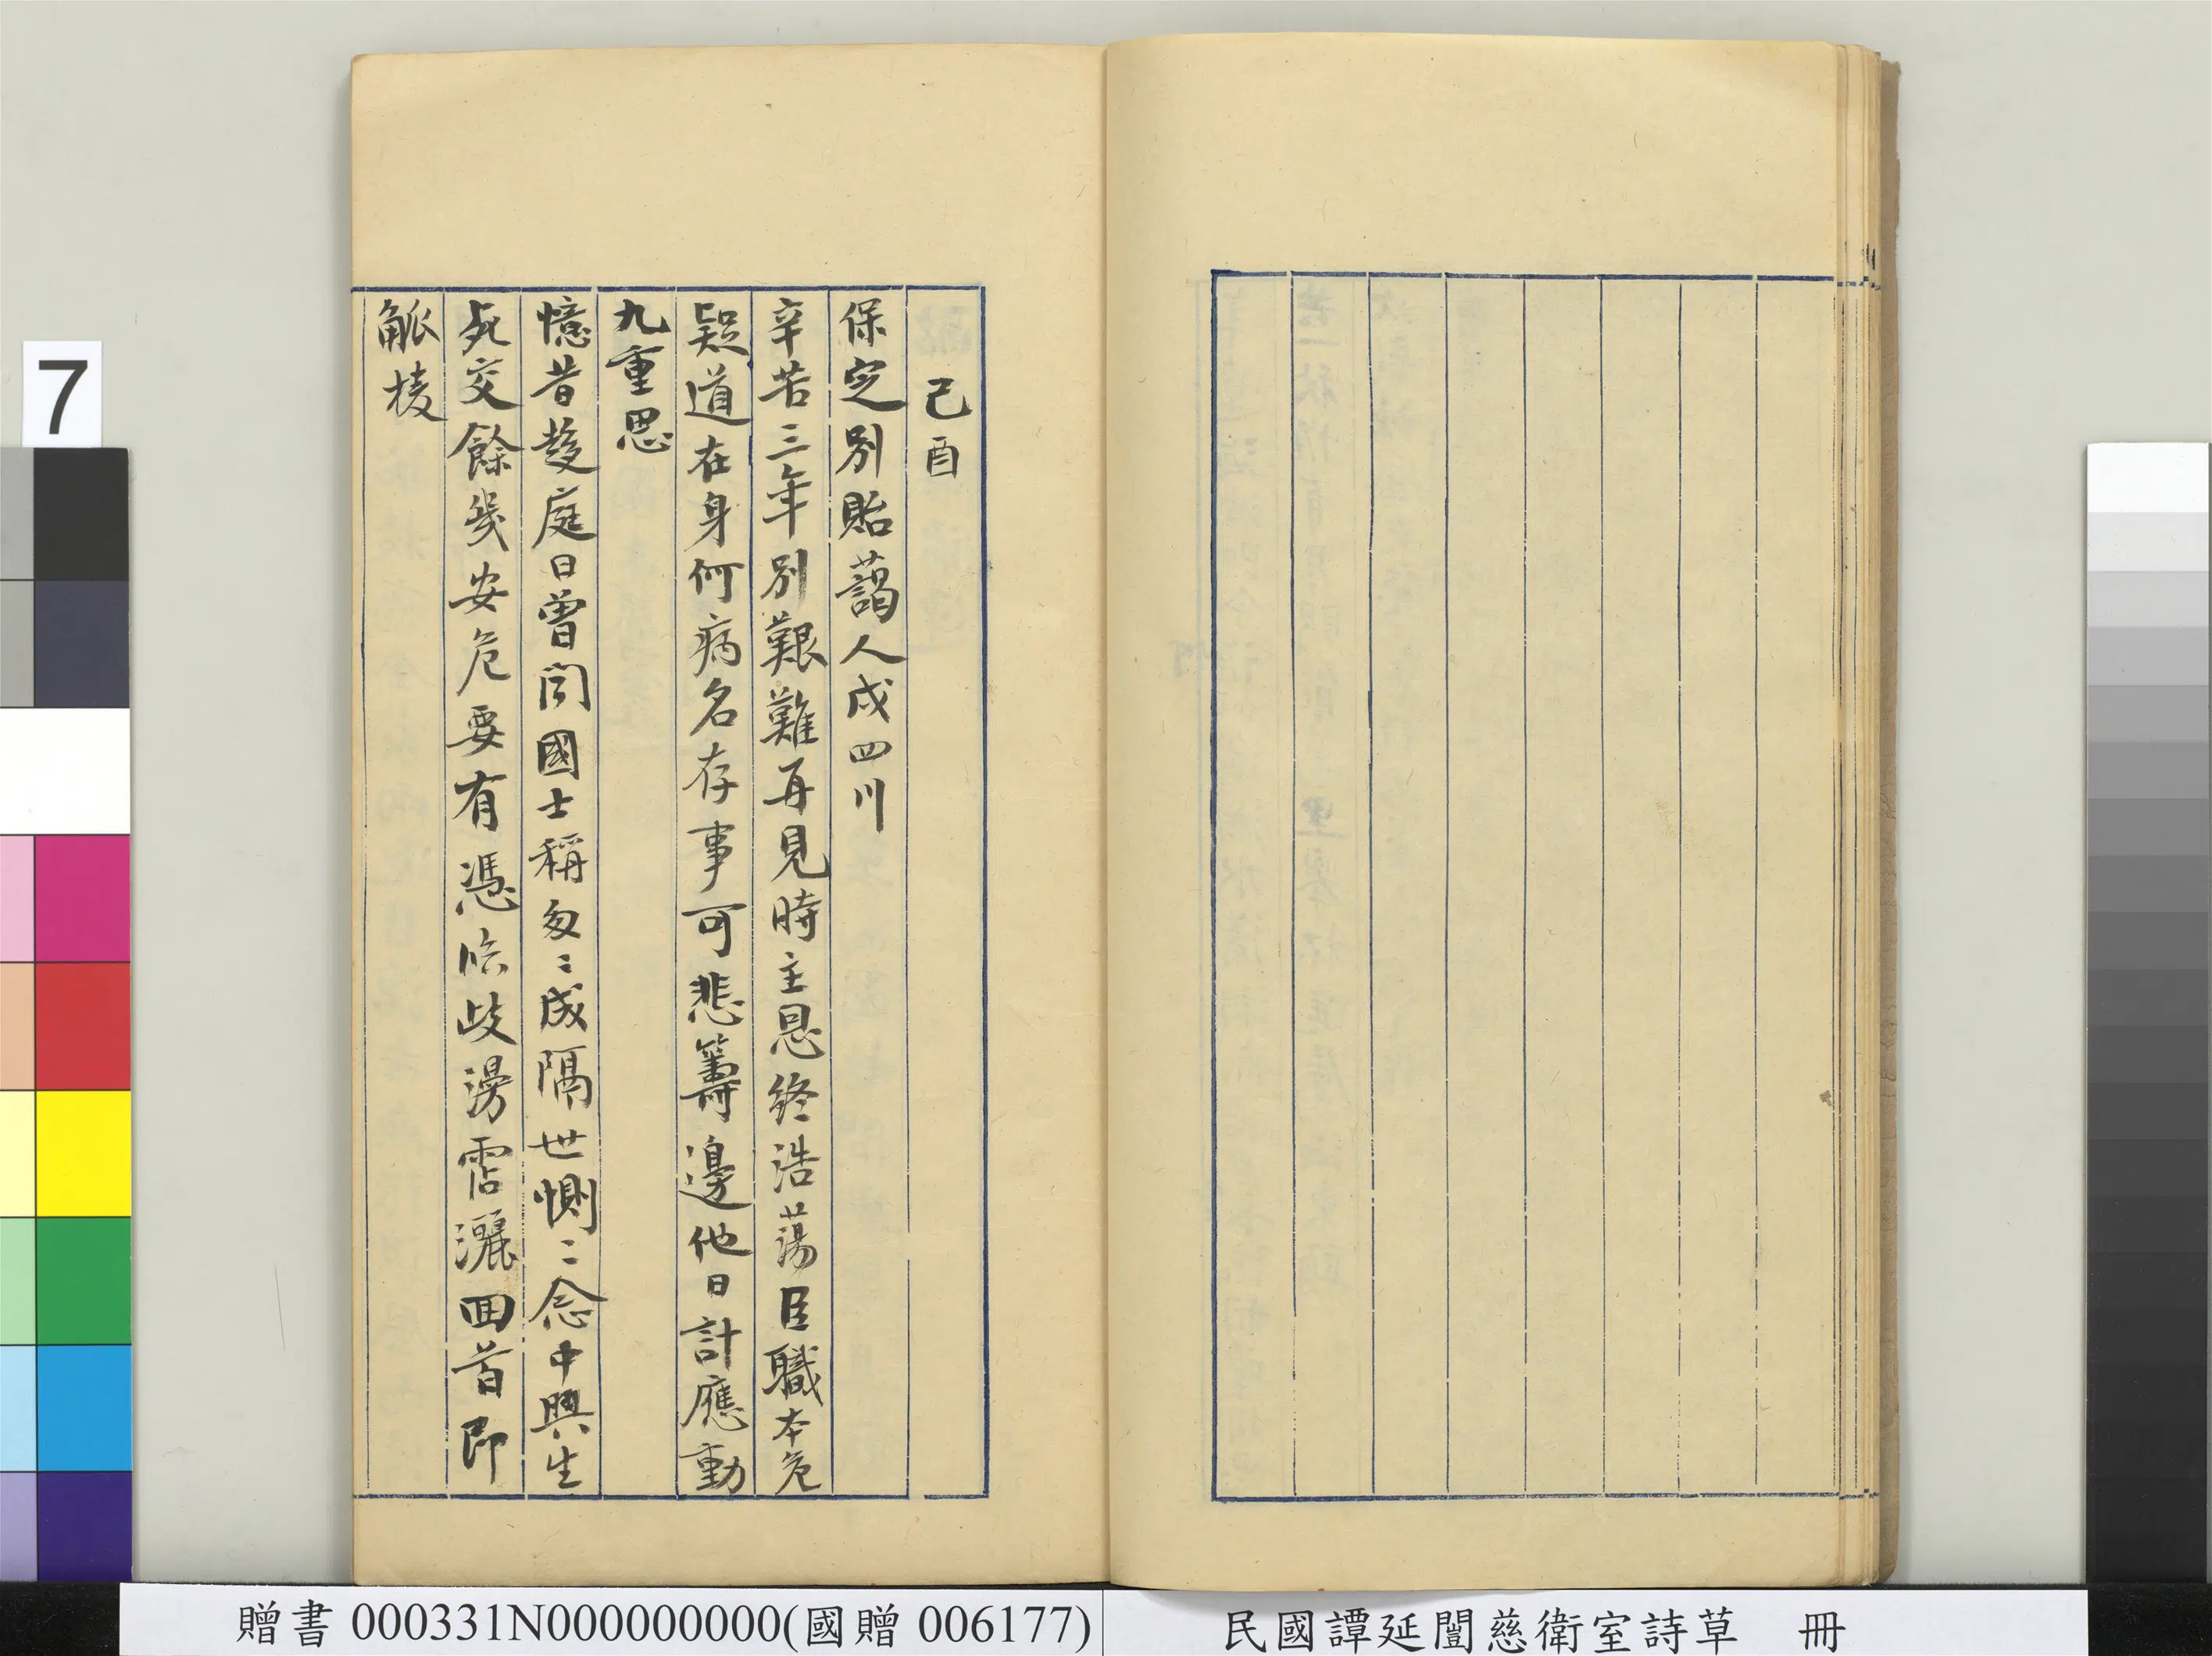 己酉
保定別貽藹人戍四川
辛苦三年別艱難再見時主恩終浩蕩臣職本危
疑道在身何病名存事可悲籌邊他日計應動
九重思
憶昔趨庭日曾聞國士稱匆〻成隔世惻〻念中興生
死交餘幾安危要有憑臨歧漫霑灑回首即
觚棱
7
贈書 000331N000000000(國贈 006177)
民國譚延闓慈衛室詩草 冊